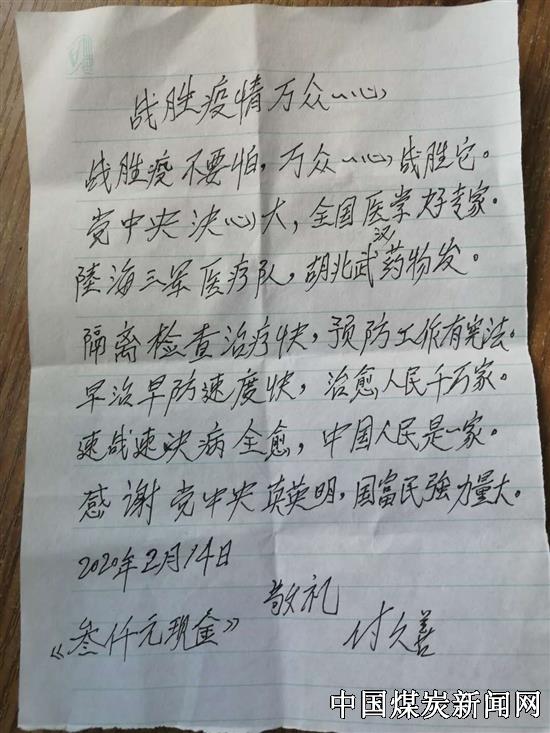 战胜疫情万众一心
战胜疫不要怕，万众一心战胜它。
党中央决心大，全国医学好专家。
陆海三军医疗队，胡北武汉药物发。
隔离检查治疗快，预防工作有宪法。
早治早防速度快，治愈人民千万家。
速战速决病全愈，中国人民是一家。
感谢党中央真英明，国富民強力量大。
2020年2月14日
敬礼
《叁仟元现金》
付久善
中国煤炭新闻网